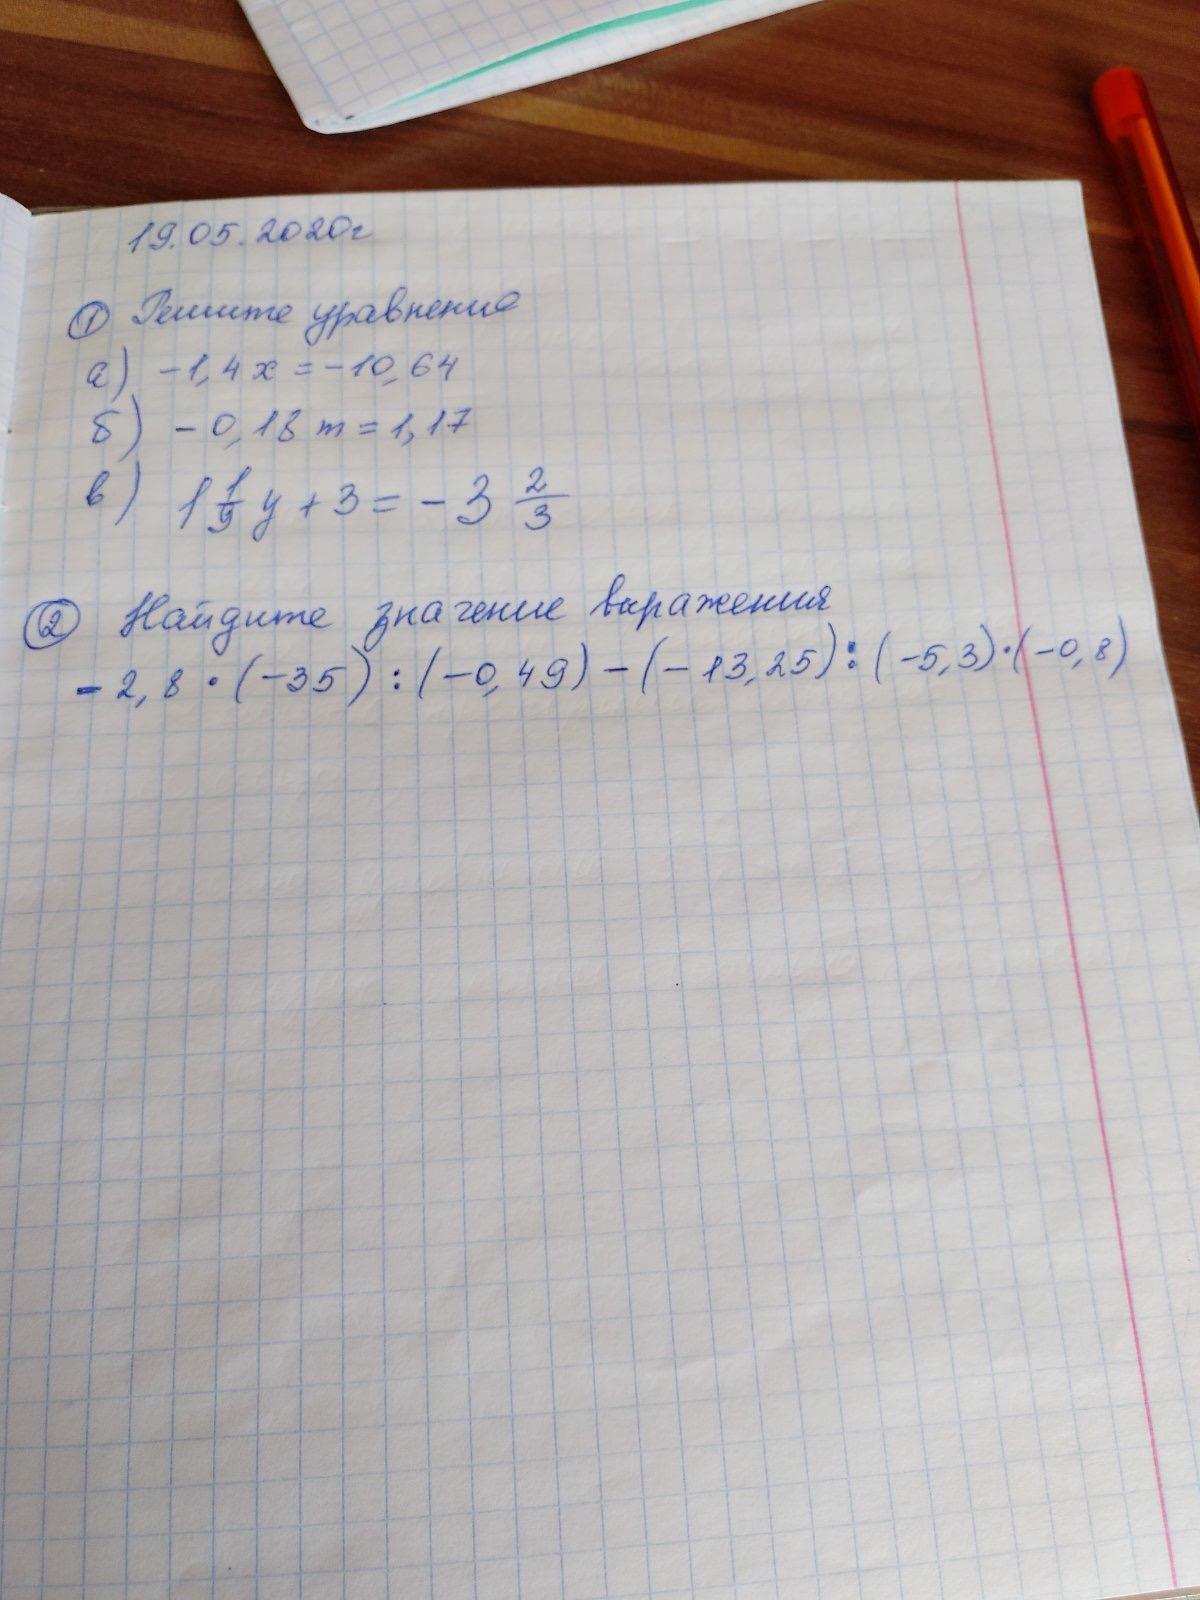 19.05.2020г
① Решите уравнение
а) -1,4x = -10,64
б) -0,18m = 1,17
в) 1 1/9 y + 3 = -3 2/3
② Найдите значение выражения
-2,8 · (-35) : (-0,49) - (-13,25) : (-5,3) · (-0,8)